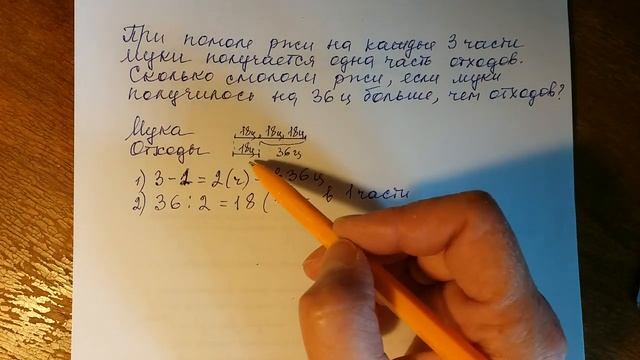 При помоле ржи на каждые 3 части
муки получается одна часть отходов.
Сколько смололи ржи, если муки
получилось на 36 ц больше, чем отходов?
Мука 18ц 18ц 18ц
Отходы 18ц 36ц
1) 3-1=2(ч) - 36ц
2) 36:2=18 ( в 1 части